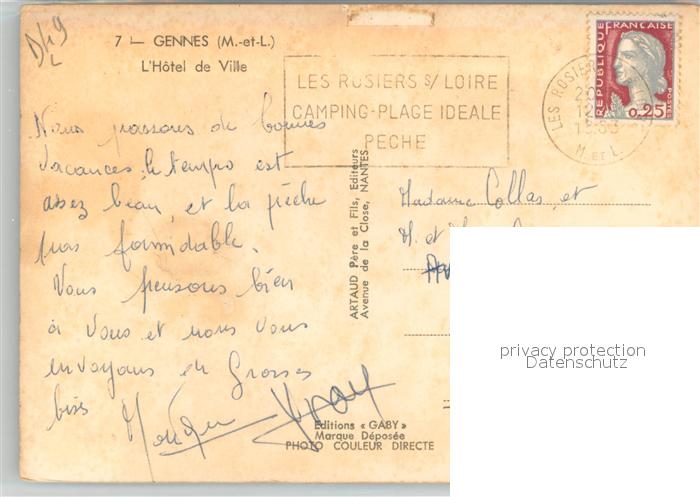 D/49
7 — GENNES (M.-et-L.)
L'Hôtel de Ville
LES ROSIERS S/ LOIRE
CAMPING-PLAGE IDEALE
PECHE
REPUBLIQUE FRANÇAISE
POSTES
0,25
LES ROSIERS
M. ET L.
Nous passons de bonnes
vacances, le temps est
assez beau, et la pêche
pas formidable.
Vous pensons bien
à vous et nous vous
envoyons de Grosses
bises
ARTAUD Père et Fils, Editeurs
Avenue de la Close, NANTES
Madame Collas, et
M. et
privacy protection
Datenschutz
Editions « GABY »
Marque Déposée
PHOTO COULEUR DIRECTE